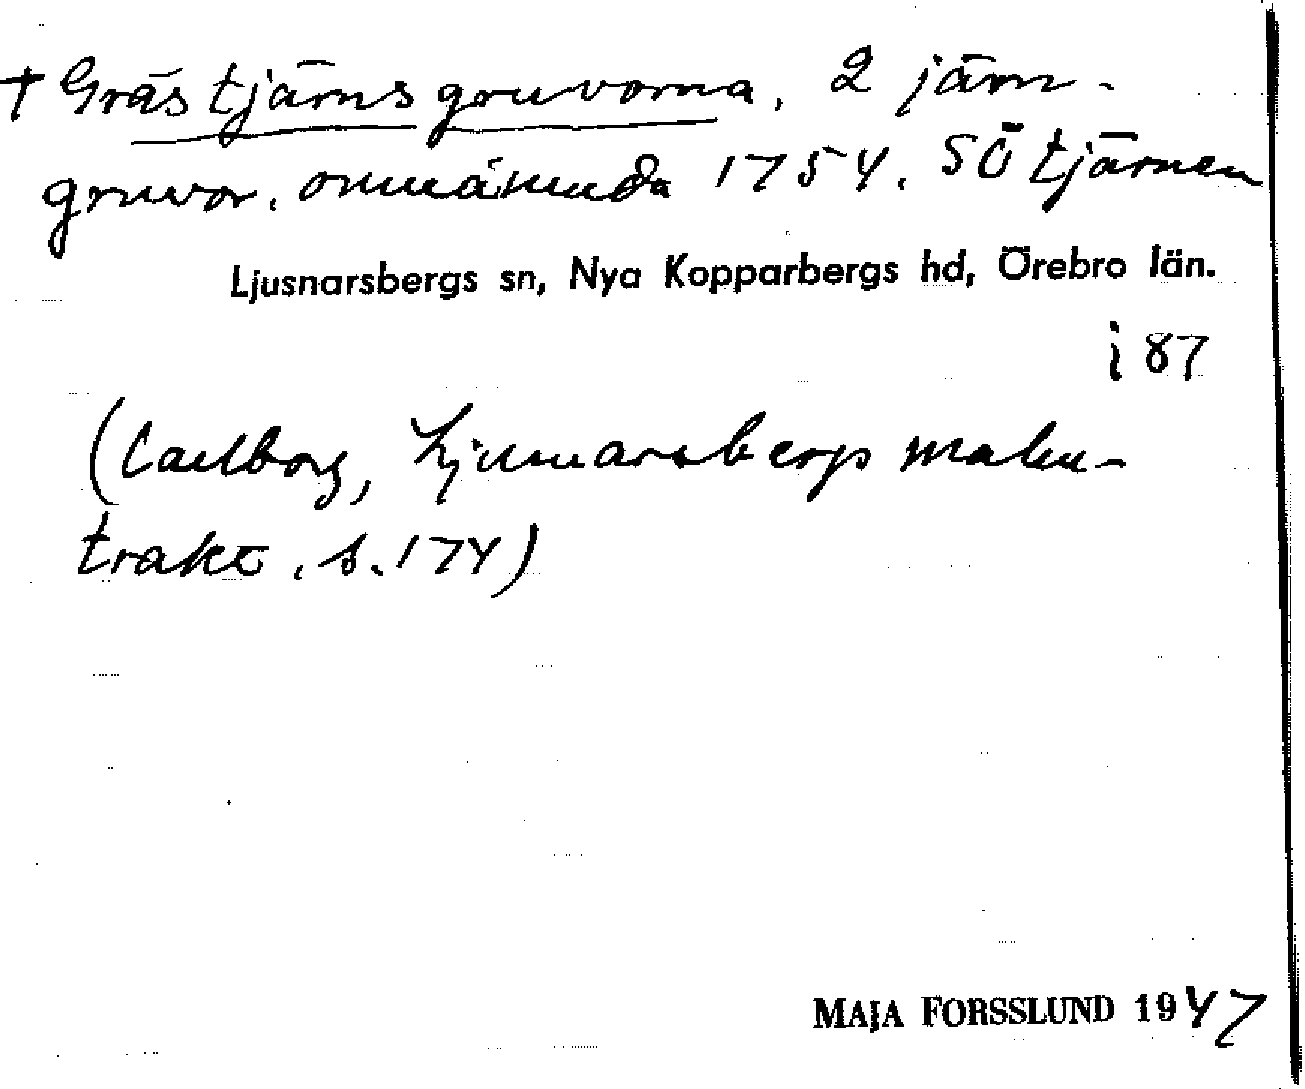 † Gråstjärnsgruvorna, 2 järn-
gruvor, omnämnda 1754. SÖ tjärnen
Ljusnarsbergs sn, Nya Kopparbergs hd, Örebro län.
i 87
(Carlborg, Ljusnarsbergs malm-
trakt, s. 174)
MAJA FORSSLUND 1947